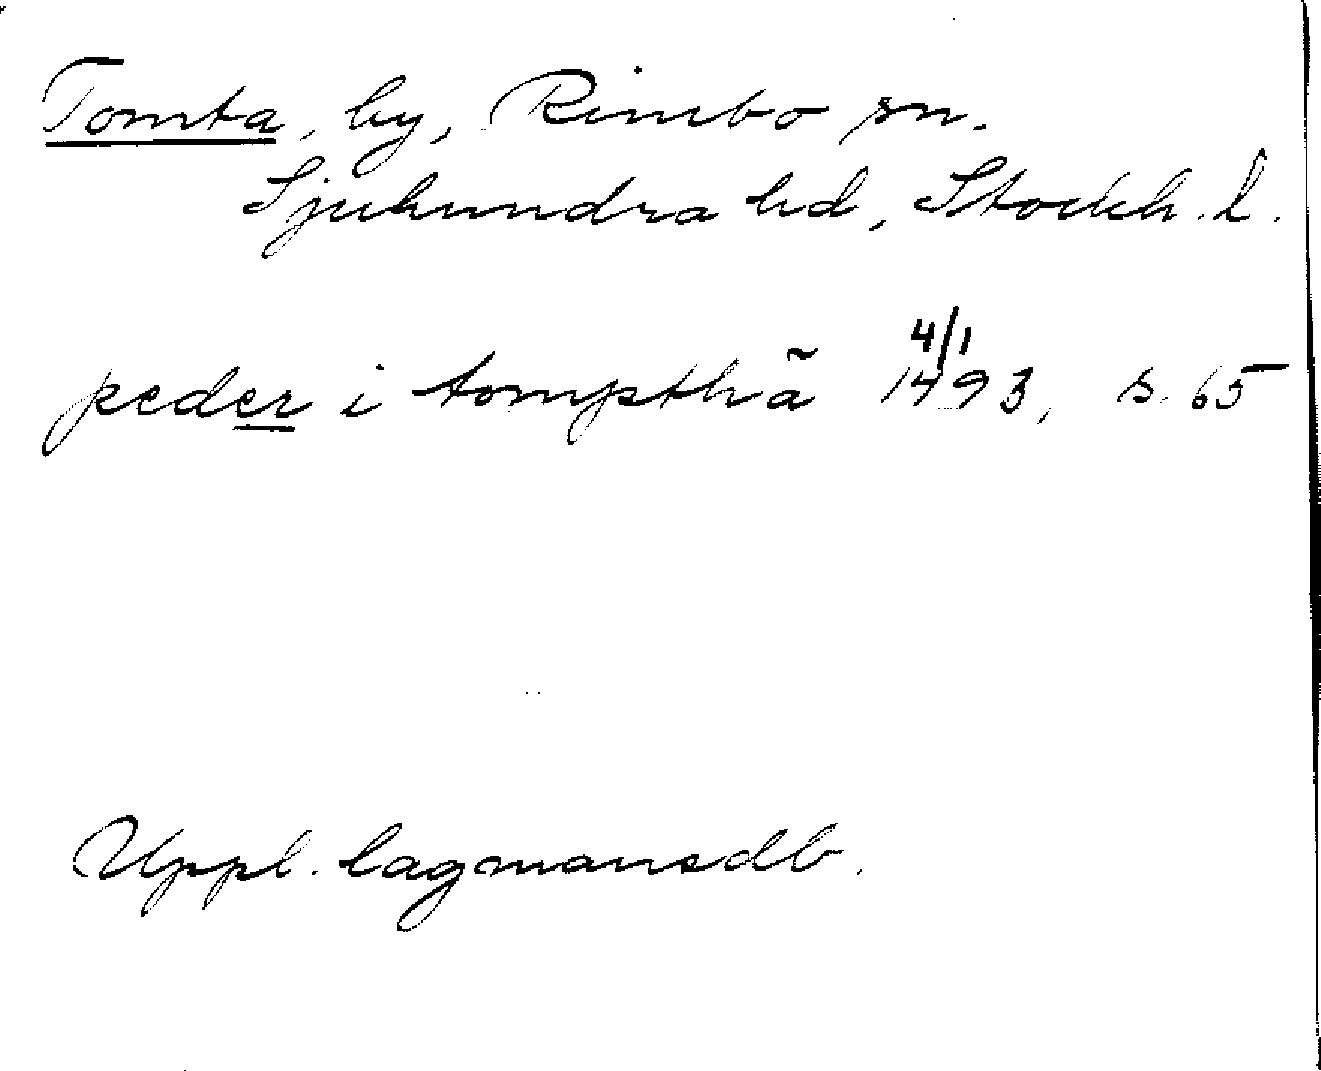 Tomta, by, Rimbo sn.
Sjuhundra hd, Stockh. l.
peder i tompthã 4/1 1493, s. 65
Uppl. lagmansdb.